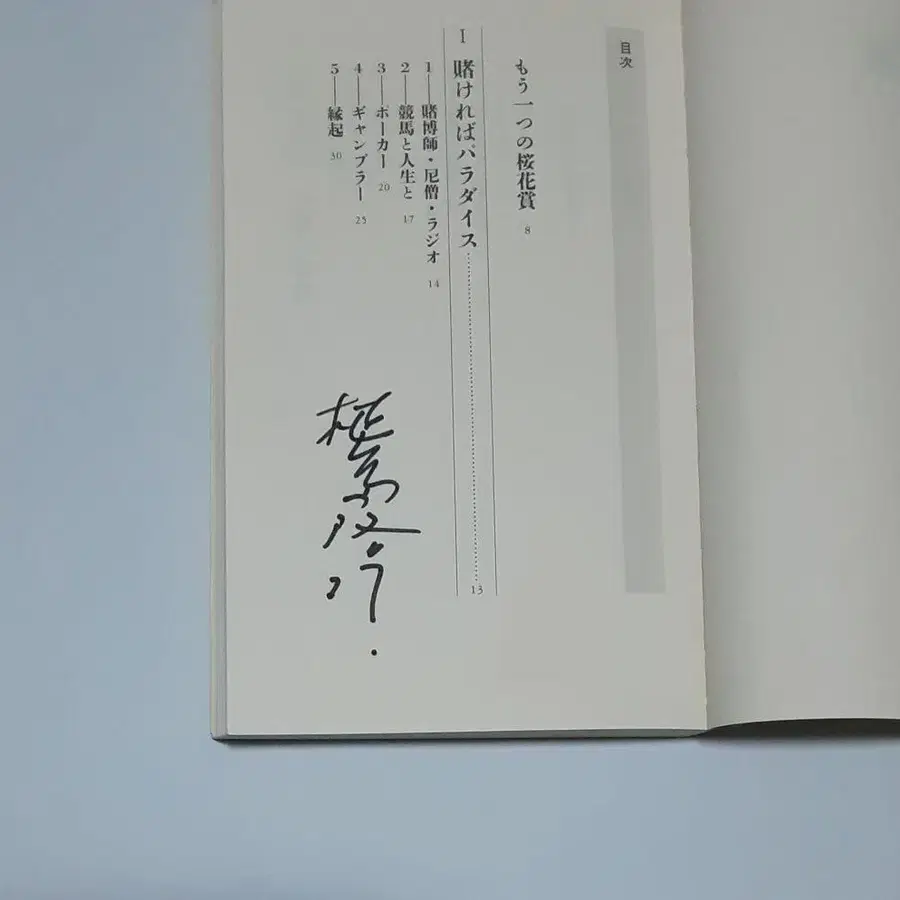 目次
もう一つの桜花賞 8
I 賭ければパラダイス 13
1—賭博師・尼僧・ラジオ 14
2—競馬と人生と 17
3—ポーカー 20
4—ギャンブラー 25
5—縁起 30